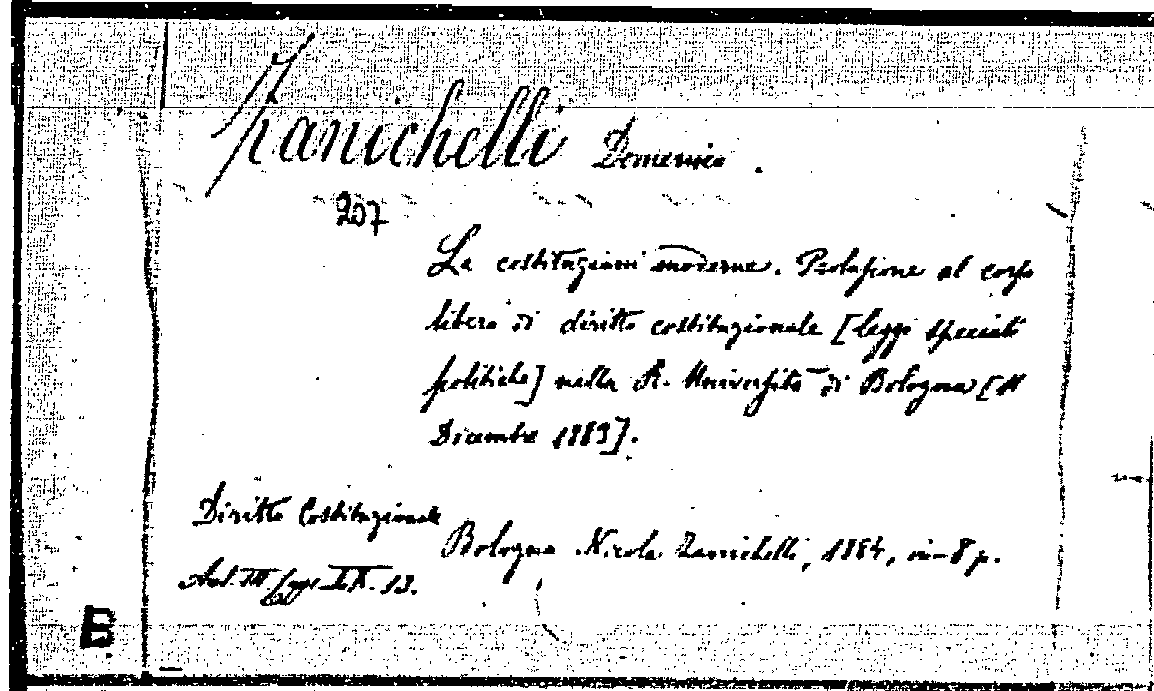 Zanichelli Domenico.
207
Le costituzioni moderne. Prolusione al corso
libero di diritto costituzionale [leggi speciali
politiche] nella R. Università di Bologna [11
Dicembre 1883].
Diritto Costituzionale
Bologna Nicola Zanichelli, 1884, in-8 p.
13.
B